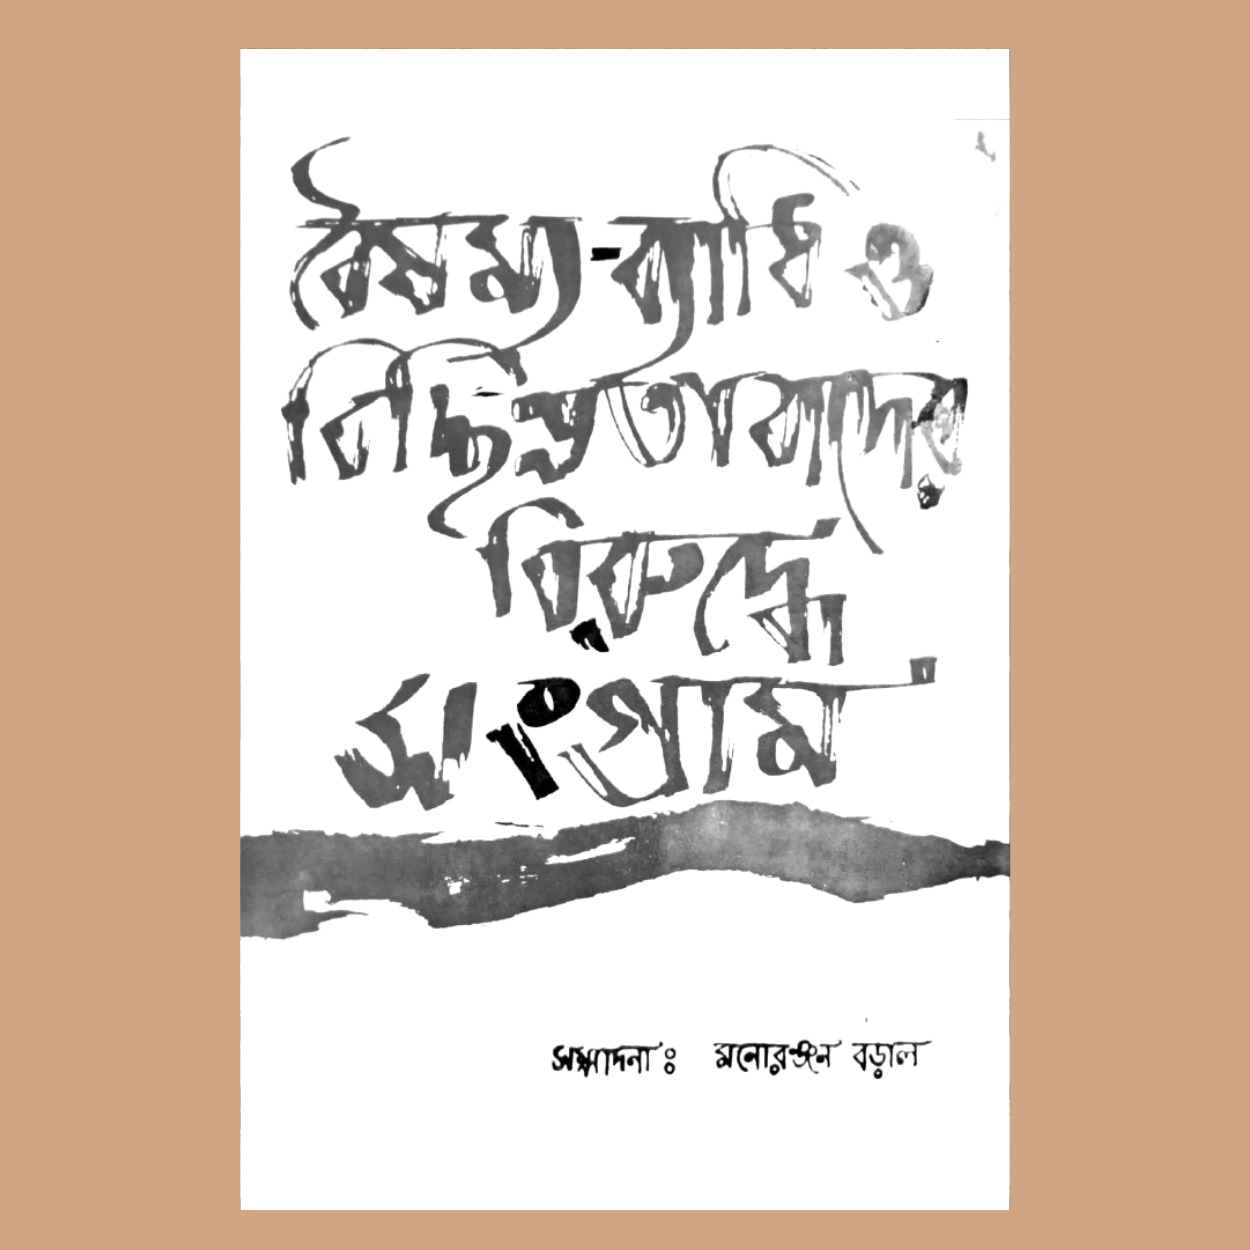 বৈষম্য-ব্যাধি ও
বিচ্ছিন্নতাবাদের
বিরুদ্ধে
সংগ্রাম
সম্পাদনা ঃ মনোরঞ্জন বড়াল